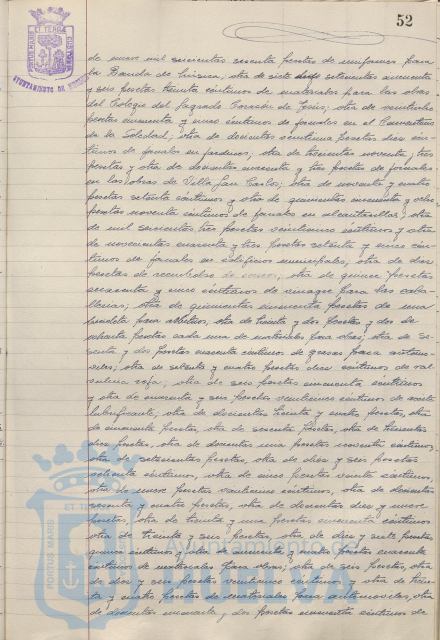 52
de nueve mil seiscientas sesenta pesetas de uniformes para
la Banda de Música, otra de siete setecientas cincuenta
y seis pesetas treinta céntimos de materiales para las obras
del Colegio del Sagrado Corazón de Jesús; otra de veintiocho
pesetas cincuenta y cinco céntimos de jornales en el Cementerio
de la Soledad; otra de doscientas pesetas diez cén-
timos de jornales en jardines; otra de trescientas noventa y tres
pesetas y otra de doscientas cuarenta y tres pesetas de jornales
en las obras de Villa San Carlos; otra de noventa y cuatro
pesetas setenta céntimos y otra de quinientas cincuenta y ocho
pesetas noventa céntimos de jornales en alcantarillas; otra
de mil seiscientas tres pesetas veinticinco céntimos y otra
de novecientas cuarenta y tres pesetas setenta y cinco cén-
timos de jornales en edificios municipales, otra de dos
pesetas de otra de quince pesetas
cuarenta y cinco céntimos de vinagre para las caba-
llerías; otra de quinientas cincuenta pesetas de una
para otra de treinta y dos pesetas y dos de
ochenta pesetas cada una de materiales para obras; otra de se-
senta y dos pesetas cuarenta céntimos de grasas para automó-
viles; otra de setenta y cuatro pesetas diez céntimos de val-
vulina roja; otra de seis pesetas cincuenta céntimos
y otra de cuarenta y seis pesetas veinticinco céntimos de aceite
lubrificante, otra de doscientas treinta y cuatro pesetas, otra
de cincuenta pesetas, otra de sesenta pesetas, otra de trescientas
diez pesetas, otra de doscientas una pesetas noventa céntimos,
otra de setecientas pesetas, otra de diez y seis pesetas
ochenta céntimos, otra de cinco pesetas veinte céntimos,
otra de nueve pesetas veinticinco céntimos, otra de doscientas
sesenta y cuatro pesetas, otra de doscientas diez y nueve
pesetas, otra de treinta y una pesetas cincuenta céntimos
otra de treinta y seis pesetas, otra de diez y siete pesetas
quince céntimos y otra de cincuenta y cinco pesetas cincuenta
céntimos de materiales para obras; otra de seis pesetas, otra
de diez y seis pesetas veinticinco céntimos y otra de trein-
ta y cuatro pesetas de materiales para automóviles, otra
de doscientas cincuenta y dos pesetas cincuenta céntimos de
ET TERRA
PORTUS MARIS
AYUNTAMIENTO DE HUELVA
Ayuntamiento de
HUELVA